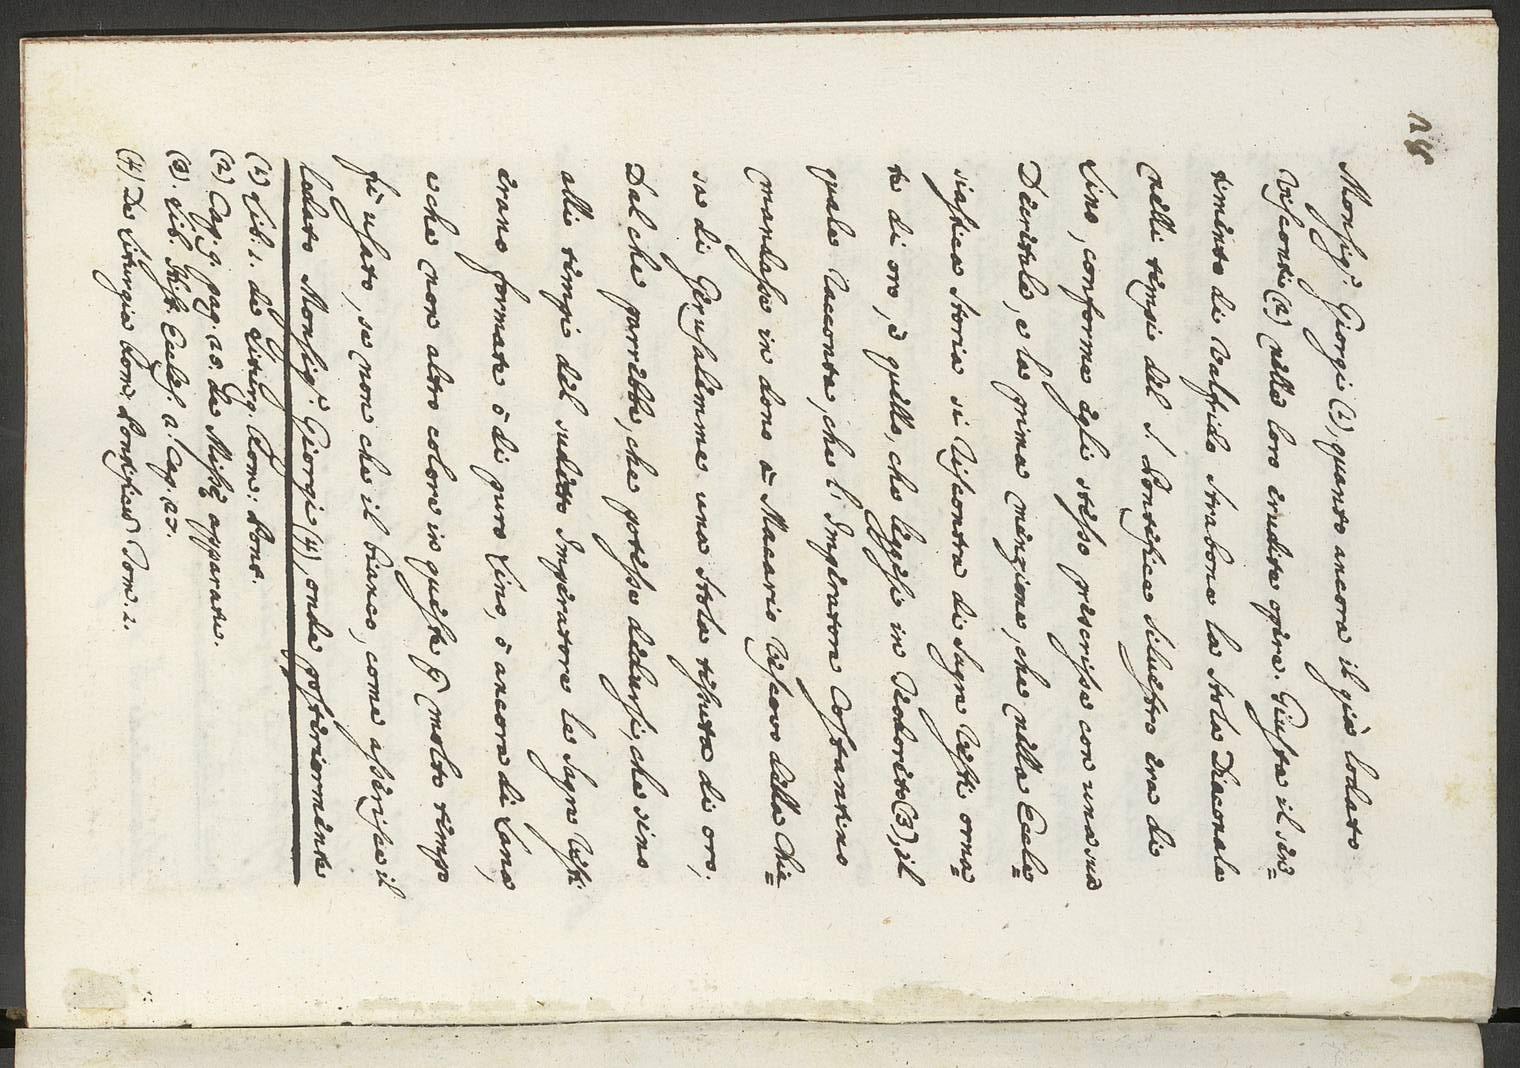 28
Monsig.r Giorgi (1), quanto ancora il già lodato
Visconti (2) nelle loro erudite opere. Giusta il sen=
timento di Valfrido Strabone la stola Diaconale
nelli tempi del S. Pontefice Silvestro era di
Lino, conforme egli stesso prescrisse con una sua
Decretale, e la prima menzione, che nella Eccle=
siastica Storia si riscontra di Sagre Vesti orna=
te di oro, è quello, che leggesi in Teodoreto (3), il
quale racconta, che l'Imperatore Costantino
mandasse in dono a Macario Vescovo della Chie=
sa di Gerusalemme una stola tessuta di oro;
Dal che parrebbe, che potesse dedursi, che sino
alli tempi del sudetto Imperatore le Sagre Vesti
erano formate ò di puro Lino, ò ancora di Lana,
e che non altro colore in queste p molto tempo
fù usato, se non che il bianco, come asserisce il
lodato Monsig.r Giorgi (4), onde posteriormente
(1) Lib. 1. de Liturg. Rom. Pont.
(2) Cap. 9. pag. 20. de Missæ apparatu.
(3) Lib. Hist. Eccles. a Cap. 27.
(4) De Liturgia Rom. Pontificis Tom. 1.